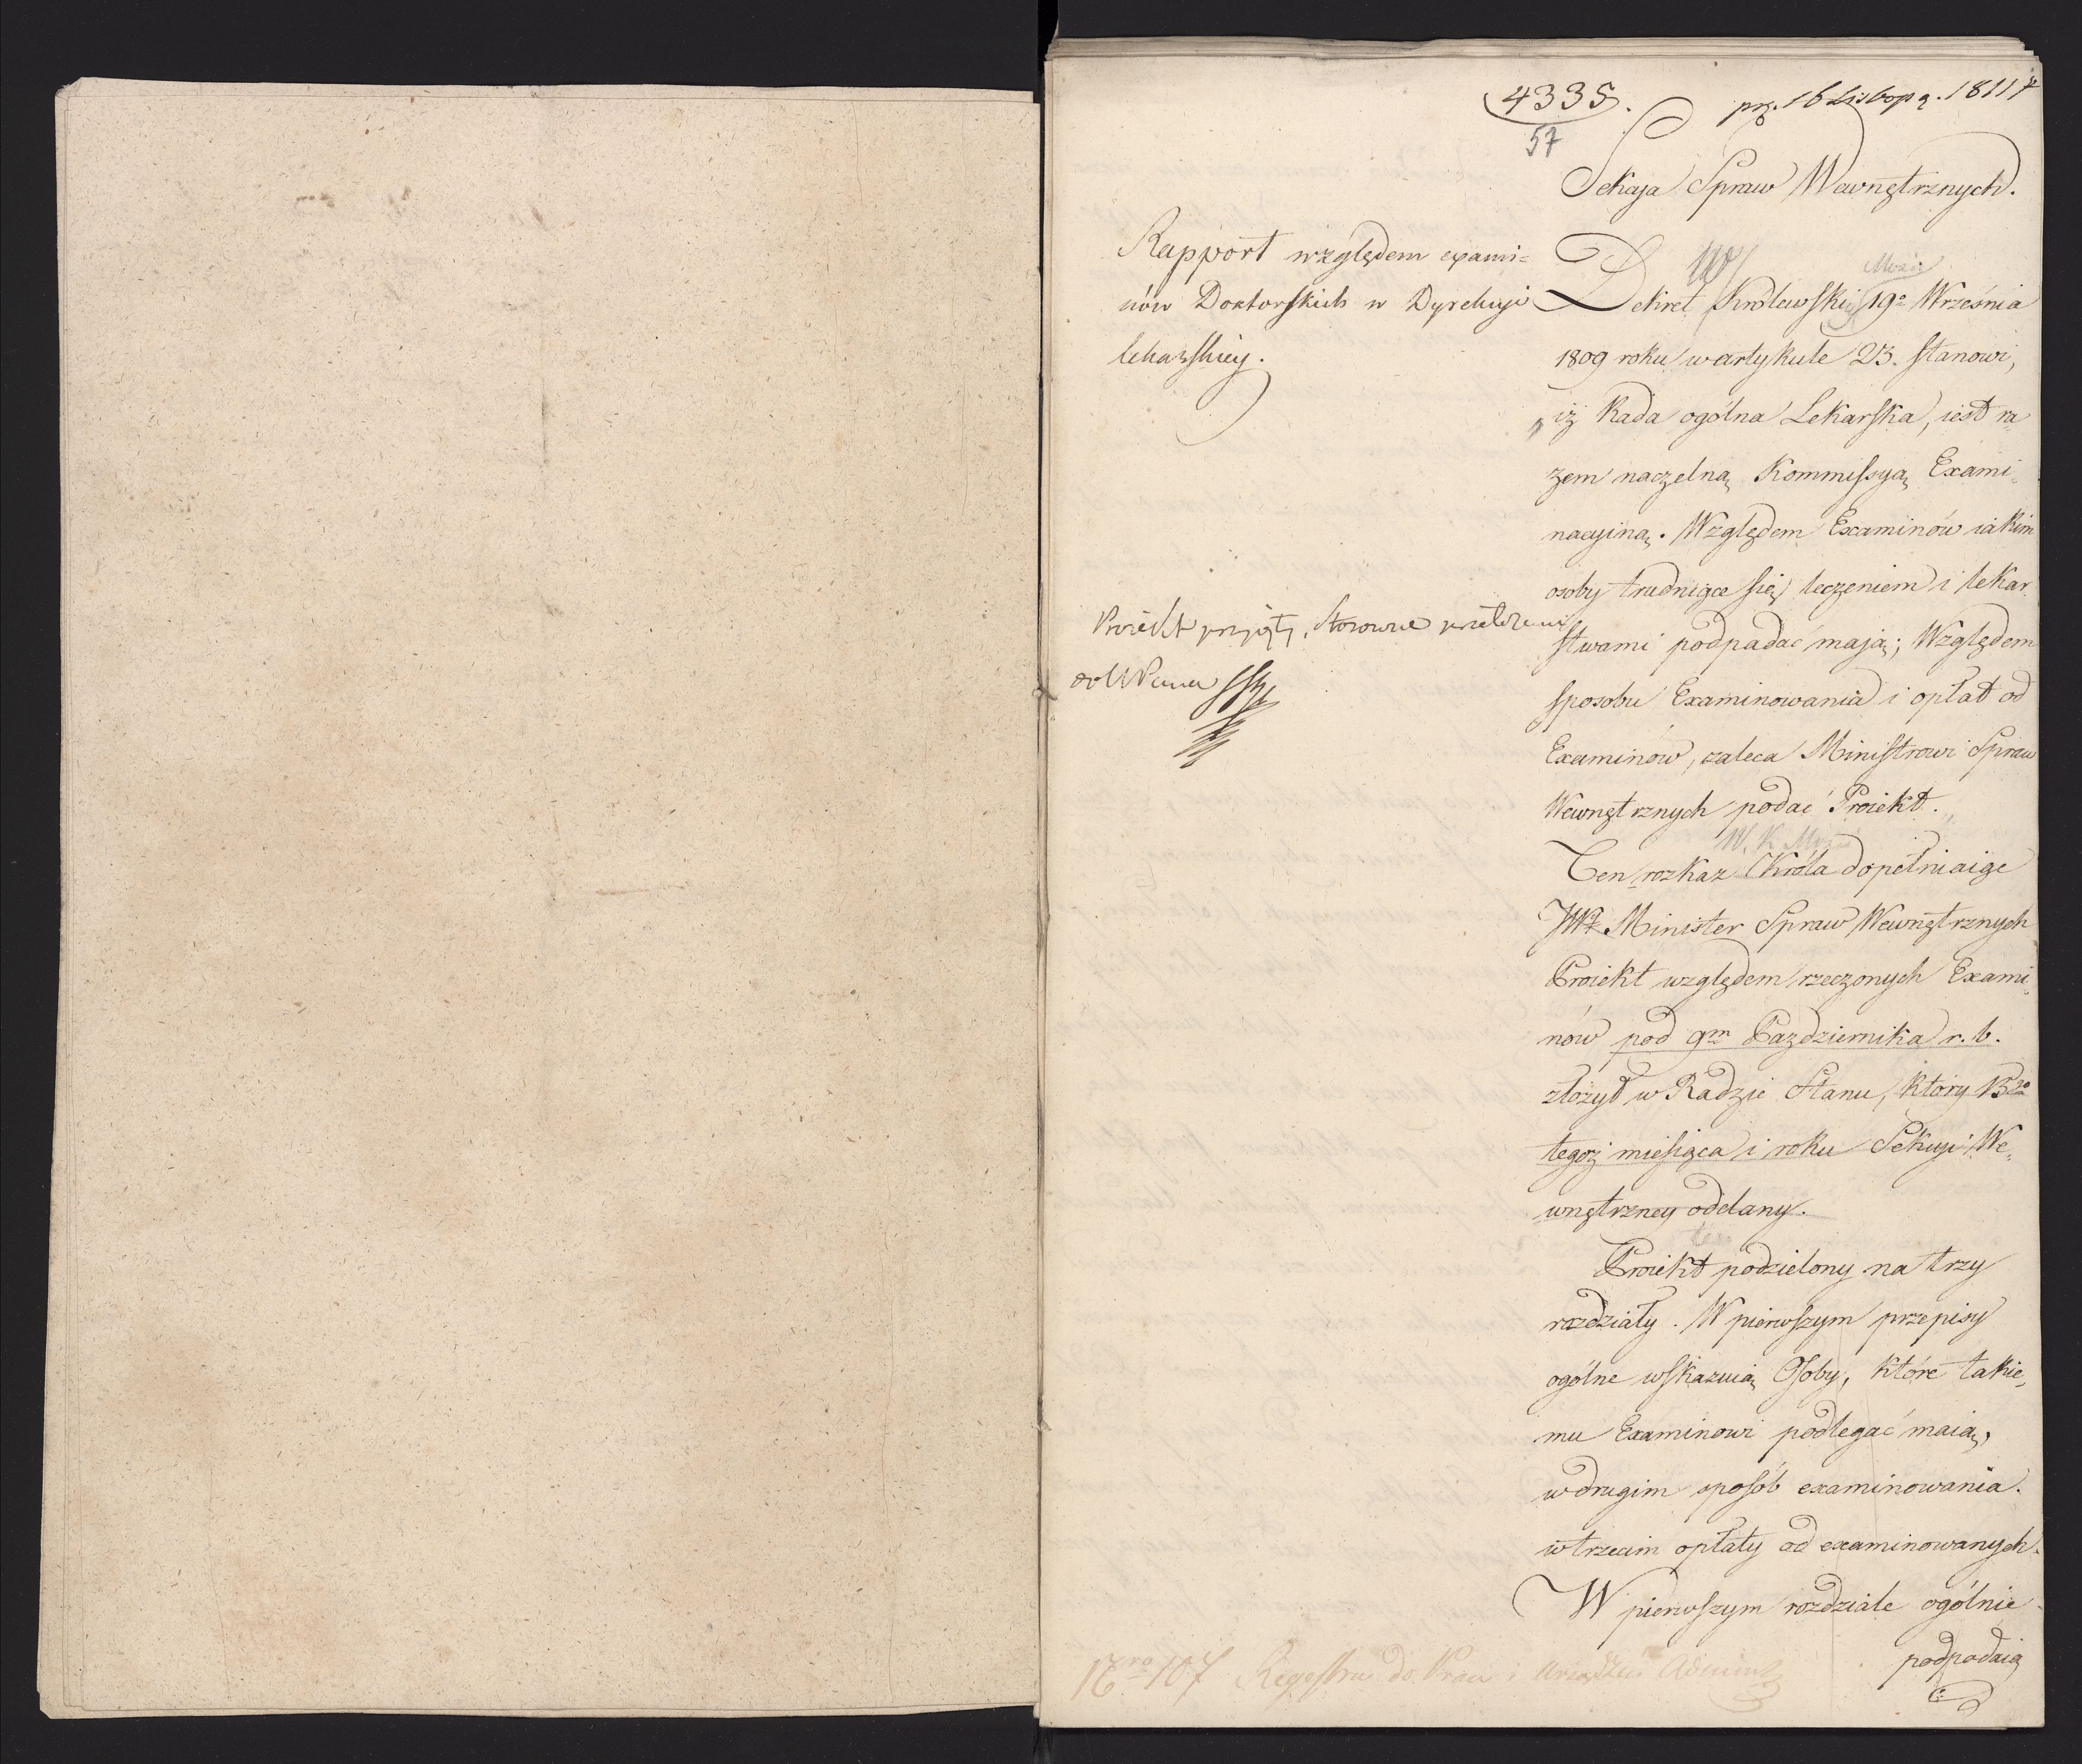 4335.
57
prz. 16 Listopa. 1811 r
Sekcya Spraw Wewnętrznych.
Rapport względem exami=
nów Doktorskich w Dyrekcyi
lekarskiey.
Dekret Królewski 19º Września
1809 roku w artykule 23. stanowi,
„iż Rada ogolna Lekarska, iest ra
zem naczelną Kommissyą Exami-
nacyiną. Względem Examinów iakim
osoby trudniące się leczeniem i lekar
stwami podpadać mają; Względem
sposobu Examinowania i opłat od
Examinów, zaleca Ministrowi Spraw
Wewnętrznych podać Proiekt.
W. K. Mości
Ten rozkaz Króla dopełniaiąc
JW. Minister Spraw Wewnętrznych
Proiekt względem rzeczonych Exami-
nów pod 9m Pazdziernika r. b.
złożył w Radzie Stanu, który 13go
tegoż miesiąca i roku Sekcyi We-
wnętrzney oddany.
Proiekt podzielony na trzy
rozdziały. W pierwszym przepisy
ogólne wskazuią Osoby, które takie-
mu Examinowi podlegać maią,
w drugim sposób examinowania.
w trzecim opłaty od examinowanych.
W pierwszym rozdziale ogólnie
podpadaią
Proiekt przyięty, stosowne
Nro 107 Regestru do Praw i Urządzeń Administ